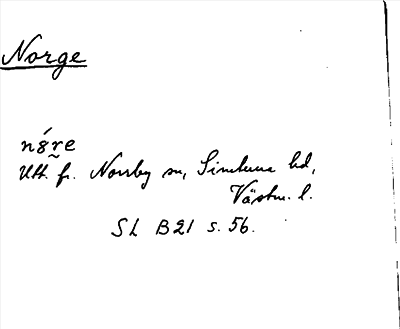 Norge
nǵ8re
Utt. fr. Norrby sn, Simtuna hd,
Västm. l.
SL B21 s. 56.